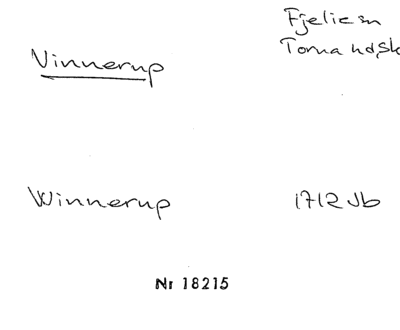 Vinnerup
Fjelie sn
Torna hd, Sk
Winnerup
1712 Jb
Nr 18215